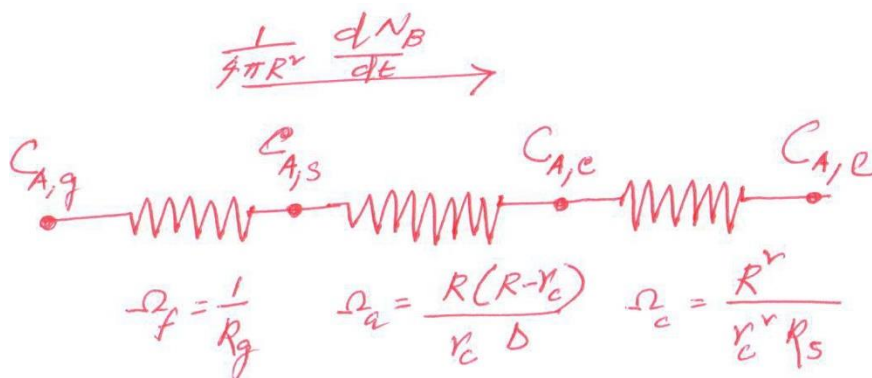 1/4πR² dN_B/dt
C_A,g C_A,s C_A,c C_A,e
Ω_f = 1/R_g Ω_a = R(R-r_c)/r_c D Ω_c = R²/r_c² R_s